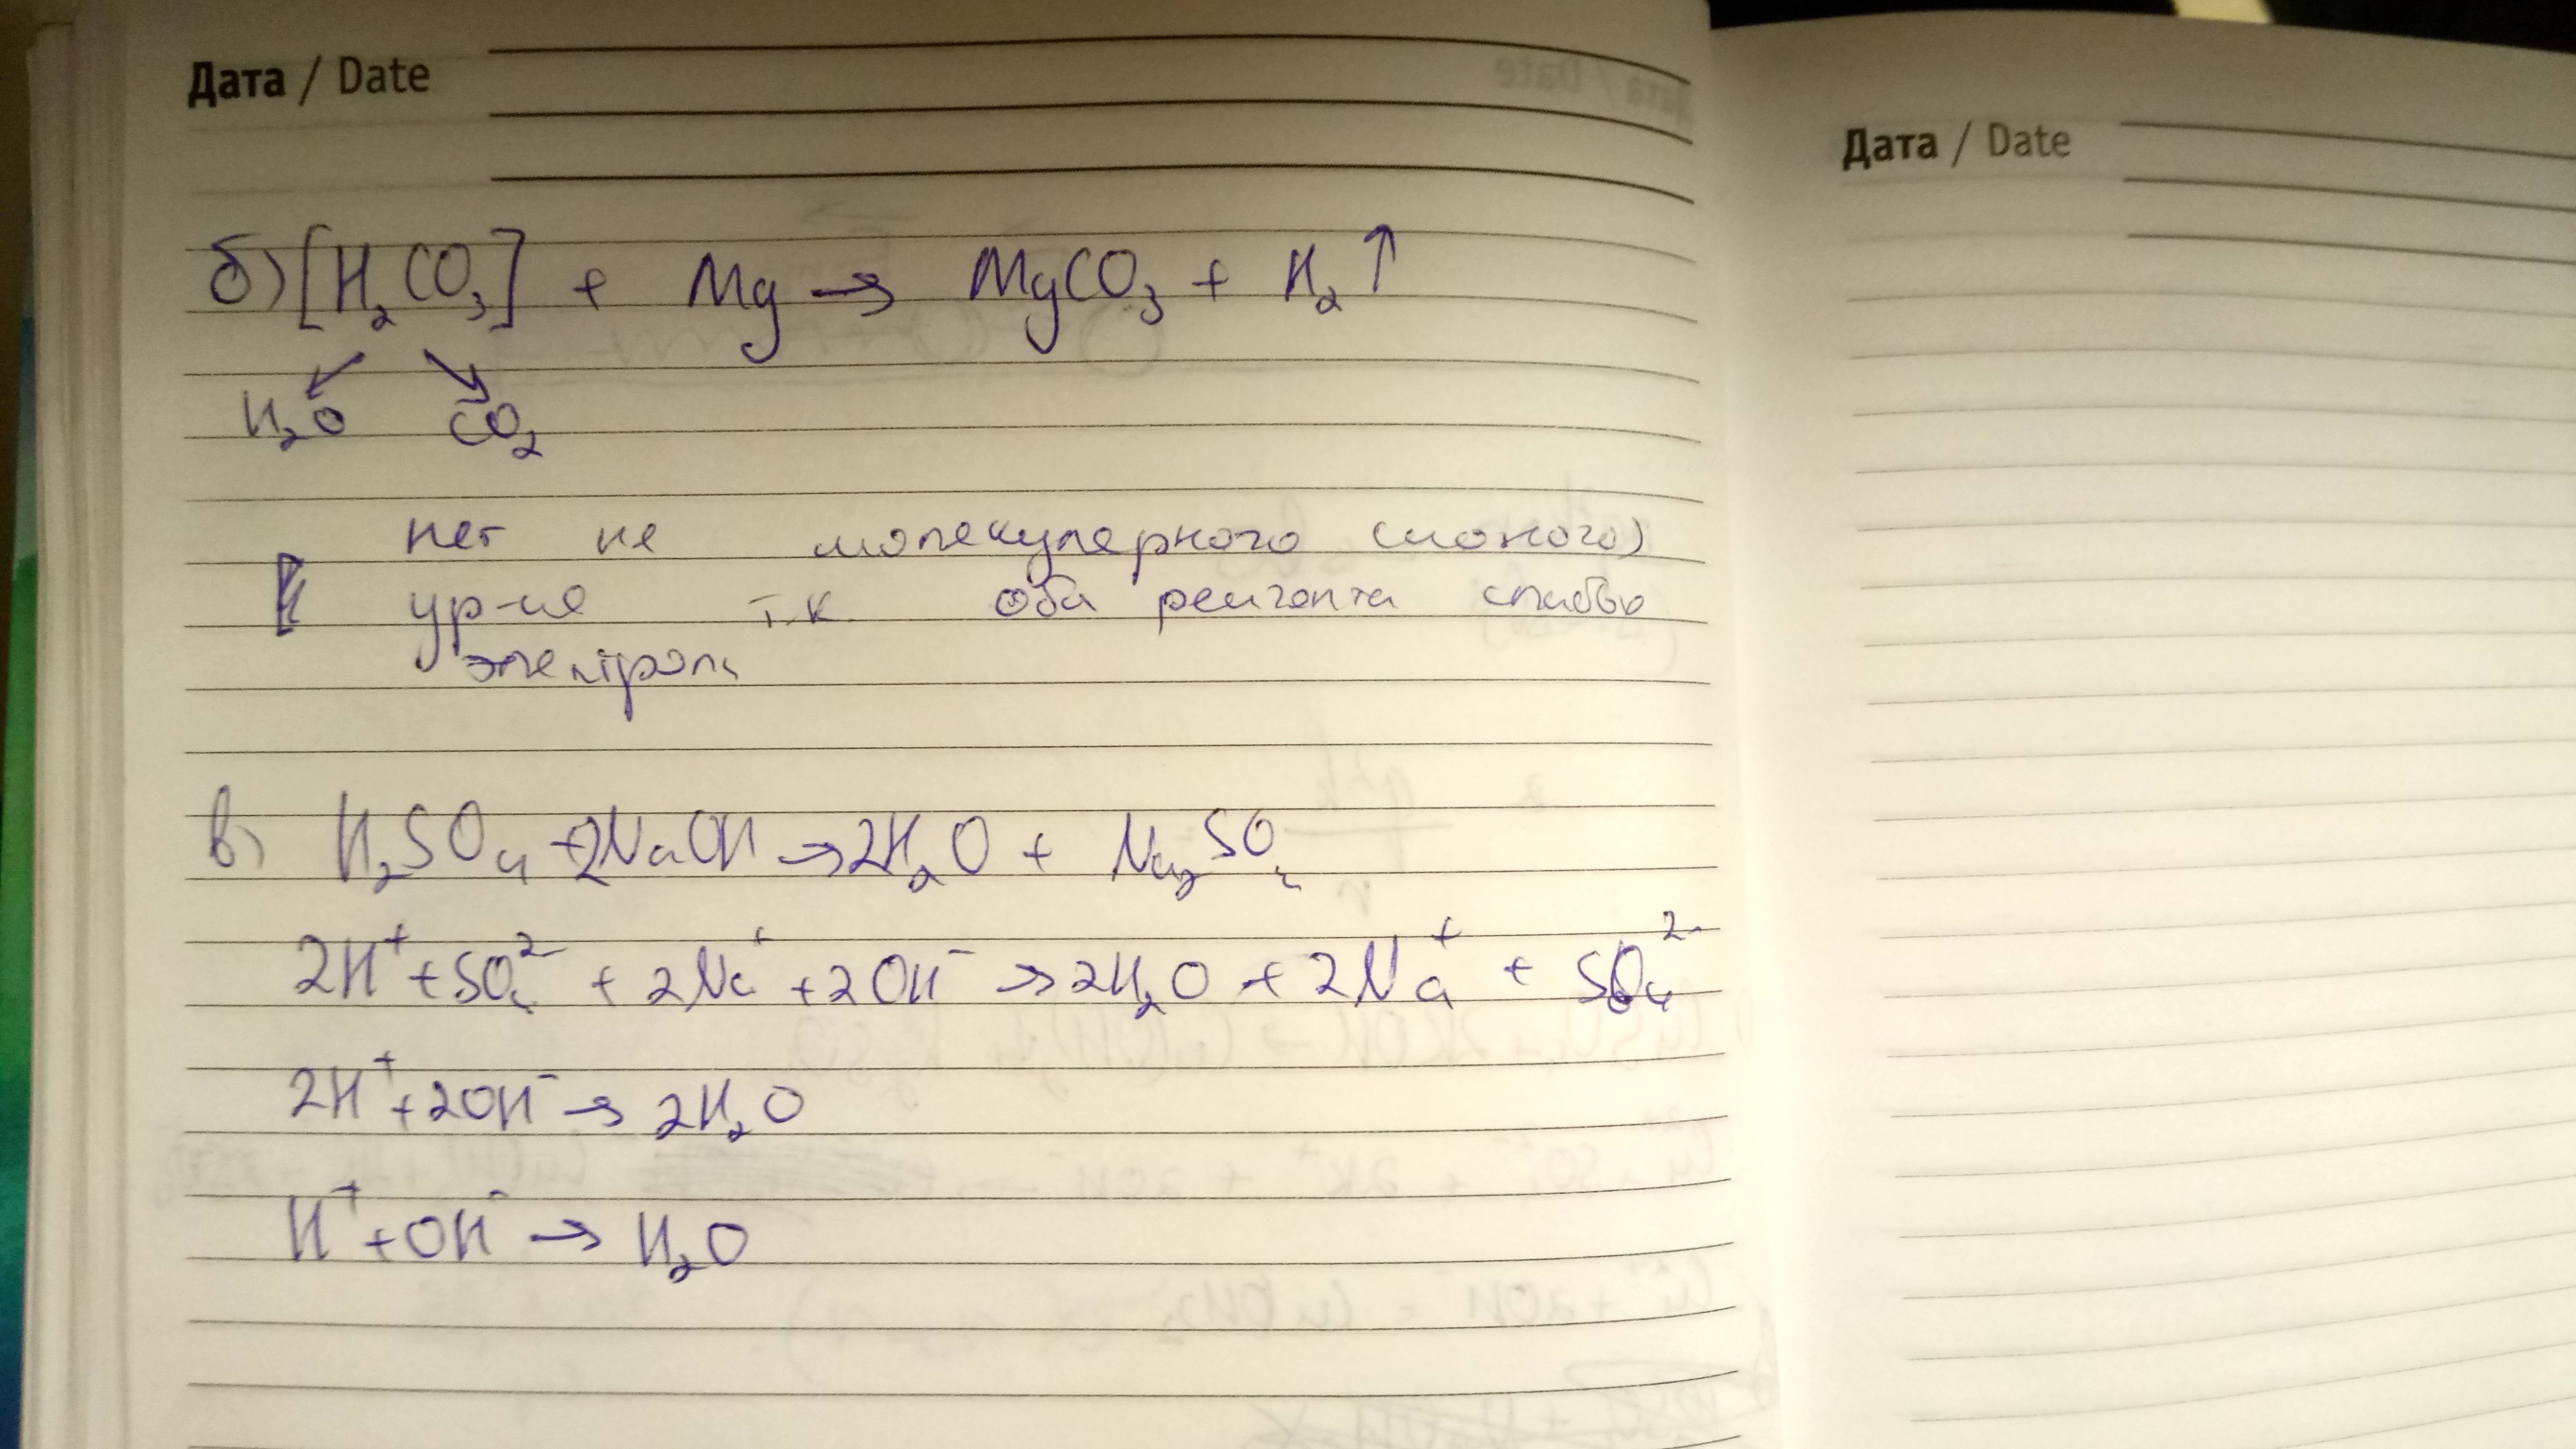 Дата / Date
б) [H₂CO₃] + Mg → MgCO₃ + H₂↑
H₂O CO₂
нет не молекулерного (ионого)
ур-ие т.к. оба реигента слабые
электроли
в) H₂SO₄ + 2NaOH → 2H₂O + Na₂SO₄
2H⁺ + SO₄²⁻ + 2Na⁺ + 2OH⁻ → 2H₂O + 2Na⁺ + SO₄²⁻
2H⁺ + 2OH⁻ → 2H₂O
H⁺ + OH⁻ → H₂O
Дата / Date